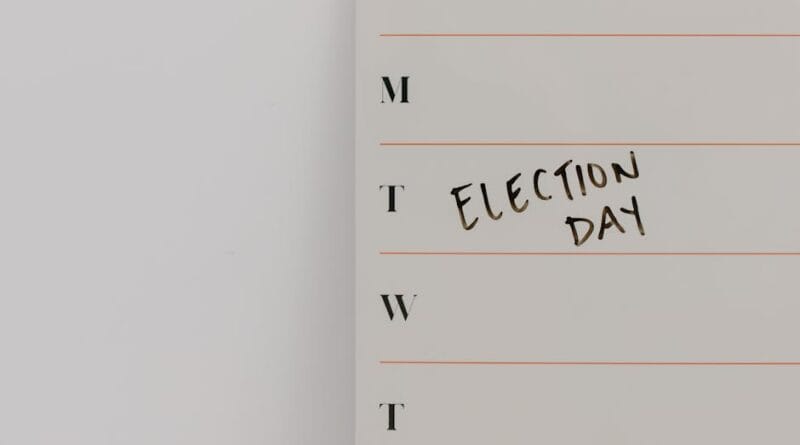 M
T
ELECTION
DAY
W
T